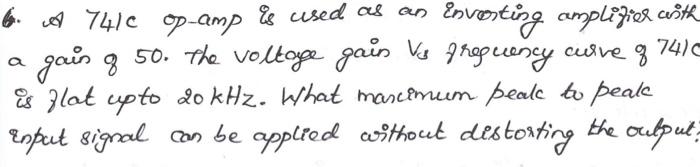 6. A 741C op-amp is used as an inverting amplifier with
a gain of 50. The voltage gain Vs frequency curve of 741C
is flat upto 20 kHz. What maximum peak to peak
input signal can be applied without distorting the output?